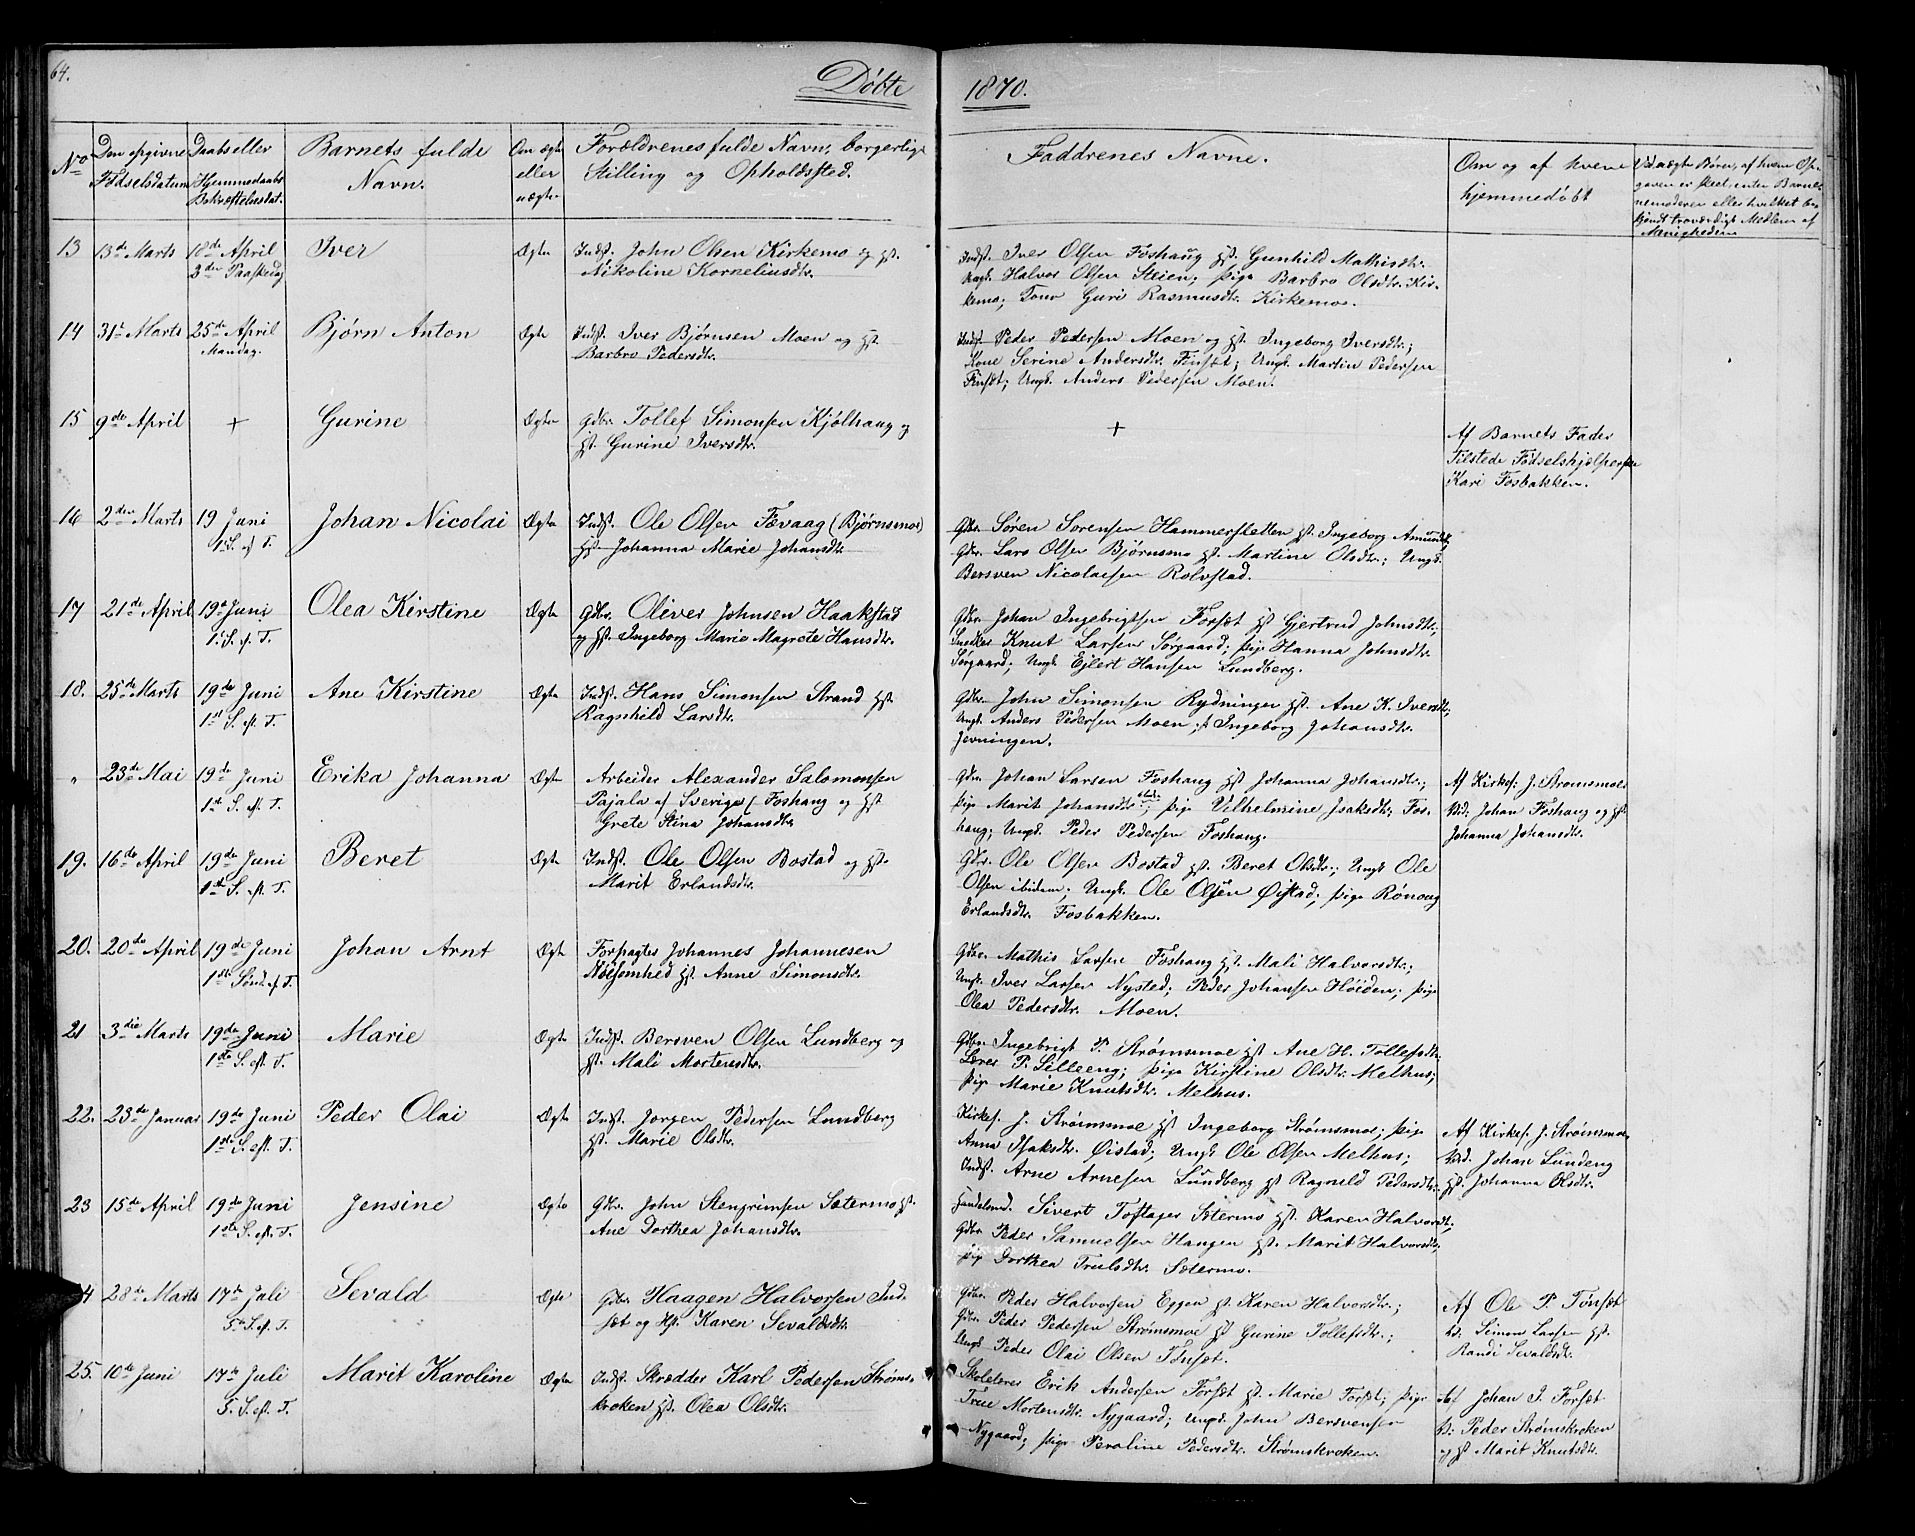 64.
Döbte
1870.
No
Den opgivne
Fødselsdatum
Daabs eller
Hjemmedaabs
Bekræftelsesdat.
Barnets fulde
Navn.
Om ægte
eller
uægte
Forældrenes fulde Navn, borgerlige
Stilling og Opholdssted.
Faddrenes Navne.
Om og af hvem
hjemmedøbt
Ved uægte Børn, af hvem Op-
gaven er skeet, enten Barne-
moderen eller hvilket be-
kjendt troværdigt Medlem af
Menigheden
13 13de Marts 18de April Iver Ægte Indst. John Olsen Kirkemo og Hst.
2den Paaskedag Nikoline Korneliusdtr.
Indst. Iver Olsen Foshaug Hst. Gunhild Mathisdtr.
Halvor Olsen Steien; Pige Barbro Olsdtr. Kir-
kemo; Guri Rasmusdtr. Kirkemoe.
14 31te Marts 25de April Bjørn Anton Ægte Indst. Iver Bjørnsen Moen og Hst.
Mandag. Barbro Pedersdtr.
Indst. Peder Pedersen Moen og Hst. Ingeborg Iversdtr.;
Kone Serine Andersdtr. Fonsæt; Ungk. Martin Pedersen
Fonsæt; Ungk. Anders Pedersen Moen.
15 9de April + Gurine Ægte Gdbr. Tollef Simonsen Kjølhaug og
Hst. Gurine Iversdtr.
+
Af Barnets Fader
Tilstede Fødselshjelpersken
Kari Fosbakken.
16 2den Marts 19 Juni Johan Nicolai Ægte Indst. Ole Olsen Fævaag (Bjørnsmoe)
1. S. ef T. Hst. Johanna Marie Johansdtr.
Gdbr. Søren Sørensen Hammersletten Hst. Ingeborg Amundsd.
Gdbr. Lars Olsen Bjørnsmo Hst. Martine Olsdtr.; Ungk.
Bersven Nicolaisen Rolvstad.
17 21de April 19de Juni Olea Kirstine Ægte Gdbr. Oliver Johnsen Haakstad
1. S. ef. T. og Hst. Ingeborg Marie Magrete Hansdtr.
Gdbr. Johan Ingebrigtsen Forsæt Hst. Gjertrud Johnsdtr.;
Snedker Knut Larsen Sørgaard; Pige Hanna Johnsdtr.
Sørgaard; Ungk. Ejlert Hansen Lundberg.
18. 25de Marts 19de Juni Ane Kirstine Ægte Indst. Hans Simonsen Strand Hst.
1st S. eft. T. Ragnhild Larsdtr.
Gdbr. John Simonsen Rydninger Hst. Ane K. Iversdtr.;
Ungk. Anders Pedersen Moen; P. Ingeborg Johansdtr.
Jevningen.
" 23de Mai 19de Juni Erika Johanna Ægte Arbeider Alexander Salomonsen
1st S. eft. T. Pajala af Sverige / Foshaug og Hst.
Grete Stina Johansdtr.
Gdbr. Johan Larsen Foshaug Hst Johanna Johansdtr.;
Pige Marit Johansdtr. ibid.; Pige Vilhelmine Isaksdtr. Fos-
haug; Ungk. Peder Pedersen Foshaug.
Af Kirkes. J. Strømsmoe
Ved. Johan Foshaug og Hst
Johanna Johansdtr.
19. 16de April 19de Juni Beret Ægte Indst. Ole Olsen Bostad og Hst.
1st S. eft. T. Marit Erlandsdtr.
Gdbr. Ole Olsen Bostad Hst. Beret Olsdtr.; Ungk Ole
Olsen ibidem; Ungk. Ole Olsen Øistad; Pige Rønoug
Erlandsdtr. Fosbakken.
20. 20de April 19de Juni Johan Arnt Ægte Forpagter Johannes Johannesen
1ste Sönd. ef. T. Nøisomhed Hst. Anne Simonsdtr.
Gdbr. Mathis Larsen Foshaug Hst. Mali Halvorsdtr.;
Ungk. Iver Larsen Nysted; Peder Johansen Höiden; Pige
Olea Pedersdtr. Moen.
21 3die Marts 19de Juni Marie Ægte Indst. Bersven Olsen Lundberg og
1ste S. eft. T. Hst. Mali Mortensdtr.
Gdbr. Ingebrigt P. Strømsmoe Hst Ane H. Tollefsdtr.
Lærer P. Lilleeng; Pige Kirstine Olsdtr. Melhus;
Pige Marie Knutsdtr. Melhus.
22. 23de Januar 19de Juni Peder Olai Ægte Indst. Jørgen Pedersen Lundberg
1ste S. eft. T. Hst. Marie Olsdtr.
Kirkes. J. Strømsmoe Hst Ingeborg Strømsmoe; Pige
Anna Isaksdtr. Øistad; Ungk. Ole Olsen Melhus;
Indst. Arne Arnesen Lundberg Hst Ragnild Pedersdtr.
Af Kirkes. J. Strømsmoe
Ved. Johan Lundeng
Hst. Johanna Olsdtr.
23 15de April 19de Juni Jensine Ægte Gdbr. John Stengrimsen Sætermo Hst.
1ste S. eft. T. Ane Dorthea Johansdtr.
Handelsmd. Sivert Toftager Sætermo Hst. Karen Halvorsdtr.;
Gdbr. Peder Samuelsen Haugen Hst. Marit Halvorsdtr.;
Pige Dorthea Trulsdtr. Sætermo.
24 28de Marts 17de Juli Sevald Ægte Gdbr. Haagen Halvorsen Ind-
5te S. eft. T. sæt og Hst. Karen Sevaldsdtr.
Gdbr. Peder Halvorsen Eggen Hst. Karen Halvorsdtr.;
Gdbr. Peder Pedersen Strømsmoe Hst Gurine Tollefsdtr.;
Ungk Peder Olai Olsen Fønsæt.
Af Ole P. Fønsæt
Vd. Simon Larsen Hst.
Randi Sevaldsdtr.
25. 10de Juni 17de Juli Marit Karoline Ægte Indst. Skrædder Karl Pedersen Strøms-
5. S. eft. T. kroken Hst. Olea Olsdtr.
Skolelærer Erik Andersen Forsæt Hst. Marie Forsæt; Pige
Mortensdtr. Nygaard; Ungk. John Bersvensen
Nygaard; Pige Peroline Pedersdtr. Strømskroken.
Af Johan I. Forsæt
Vd. Peder Strømskroken
og Hst Marit Knutsdtr.